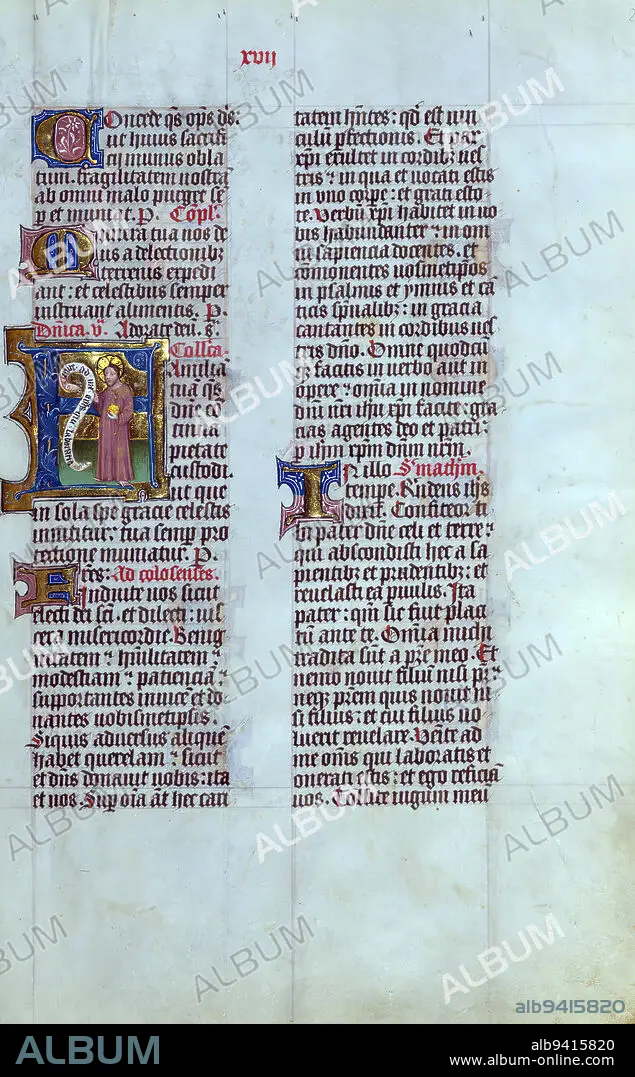 xvij
Oncede q̄s op̄s ds̄:
ut huius sacrifi
cij munus obla
tum. fragilitatem nostrā
ab omni malo purget sē
p̲ et muniat. P. Cōpl.
tua nos de
us a delectionibꝫ
terrenis expedi
ant: et celestibus semper
instruant alimentis. P.
Dn̄ica. v. Adorate deū. s.
Coll'ca.
Amiliā
tuā q̄s
dn̄e cō
tinua
pietate
custodi.
ut que
in sola spe gracie celestis
innititur: tua semper pro
tectione muniatur. P.
Ad colosenses.
Induite uos sicut
electi dei sc̄i. et dilecti: uis
cera misericordie. Benig
nitatem ⁊ hūilitatem ⁊
modestiam ⁊ patienciā:
supportantes inuicē et do
nantes uobismetipsis.
Siquis aduersus aliquē
habet querelam ⁊ sicut
et dn̄s donauit uobis: ita
et uos. Sup̲ oīa āt hec cari
tatem hn̄tes: qd̄ est uin
culū p̲fectionis. Et pax
xp̄i exultet in cordibꝫ ues
tris ⁊ in qua et uocati estis
in uno corpe: et grati esto
te. Verbū xp̄i habitet in uo
bis habundanter ⁊ in om
ni sapiencia docentes. et
cōmonentes uosmetipōs
in psalmis et ymnis et cā
ticis sp̄ualibꝫ: in gracia
cantantes in cordibus ues
tris dn̄o. Omne quodcū
qꝫ facitis in uerbo aut in
opere ⁊ omnia in nomine
dn̄i nr̄i ih̄u xp̄i facite: gra
cias agentes deo et patri:
p̲ ih̄m xp̄m dn̄m nr̄m.
N illo S. mathm̄.
tempe. Rn̄dens ih̄s
dixit. Confiteor ti
bi pater dn̄e celi et terre ⁊
qui abscondisti hec a sa
pientibꝫ et prudentibꝫ: et
reuelasti ea p̲uulis. Ita
pater: qm̄ sic fuit placi
tū ante te. Omīa michi
tradita sūt a pr̄e meo. Et
nemo nouit filiū nisi pr̄ ⁊
neqꝫ pr̄em quis nouit ni
si filius: et cui filius uo
luerit reuelare. Venite ad
me om̄is qui laboratis et
onerati estis: et ego reficiā
uos. Tollite iugum meū
ALBUM
alb9415820
ALBUM
alb9415820
www.album-online.com